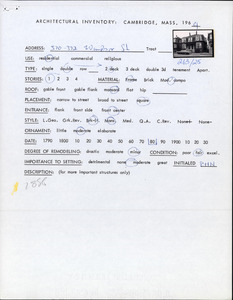 ARCHITECTURAL INVENTORY: CAMBRIDGE, MASS, 196
ADDRESS: Windsor St Tract
USE: residential commercial religious
TYPE: single double row 2 deck 3 deck double 3d tenement Apart.
STORIES: 1 2 3 4 MATERIAL: Frame Brick Mod.
ROOF: gable front gable flank mansard flat hip
PLACEMENT: narrow to street broad to street square
ENTRANCE: flank front side front center
STYLE: L.Geo. Gk.Rev. Mans. Med. Q.A. C.Rev. None+ None-
ORNAMENT: little moderate elaborate
DATE: 1790 1800 10 20 30 40 50 60 70 [80] 90 1900 10 20 30
DEGREE OF REMODELING: drastic moderate minor CONDITION: poor fair excel.
IMPORTANCE TO SETTING: detrimental none moderate great INITIALED
DESCRIPTION: (for more important structures only)